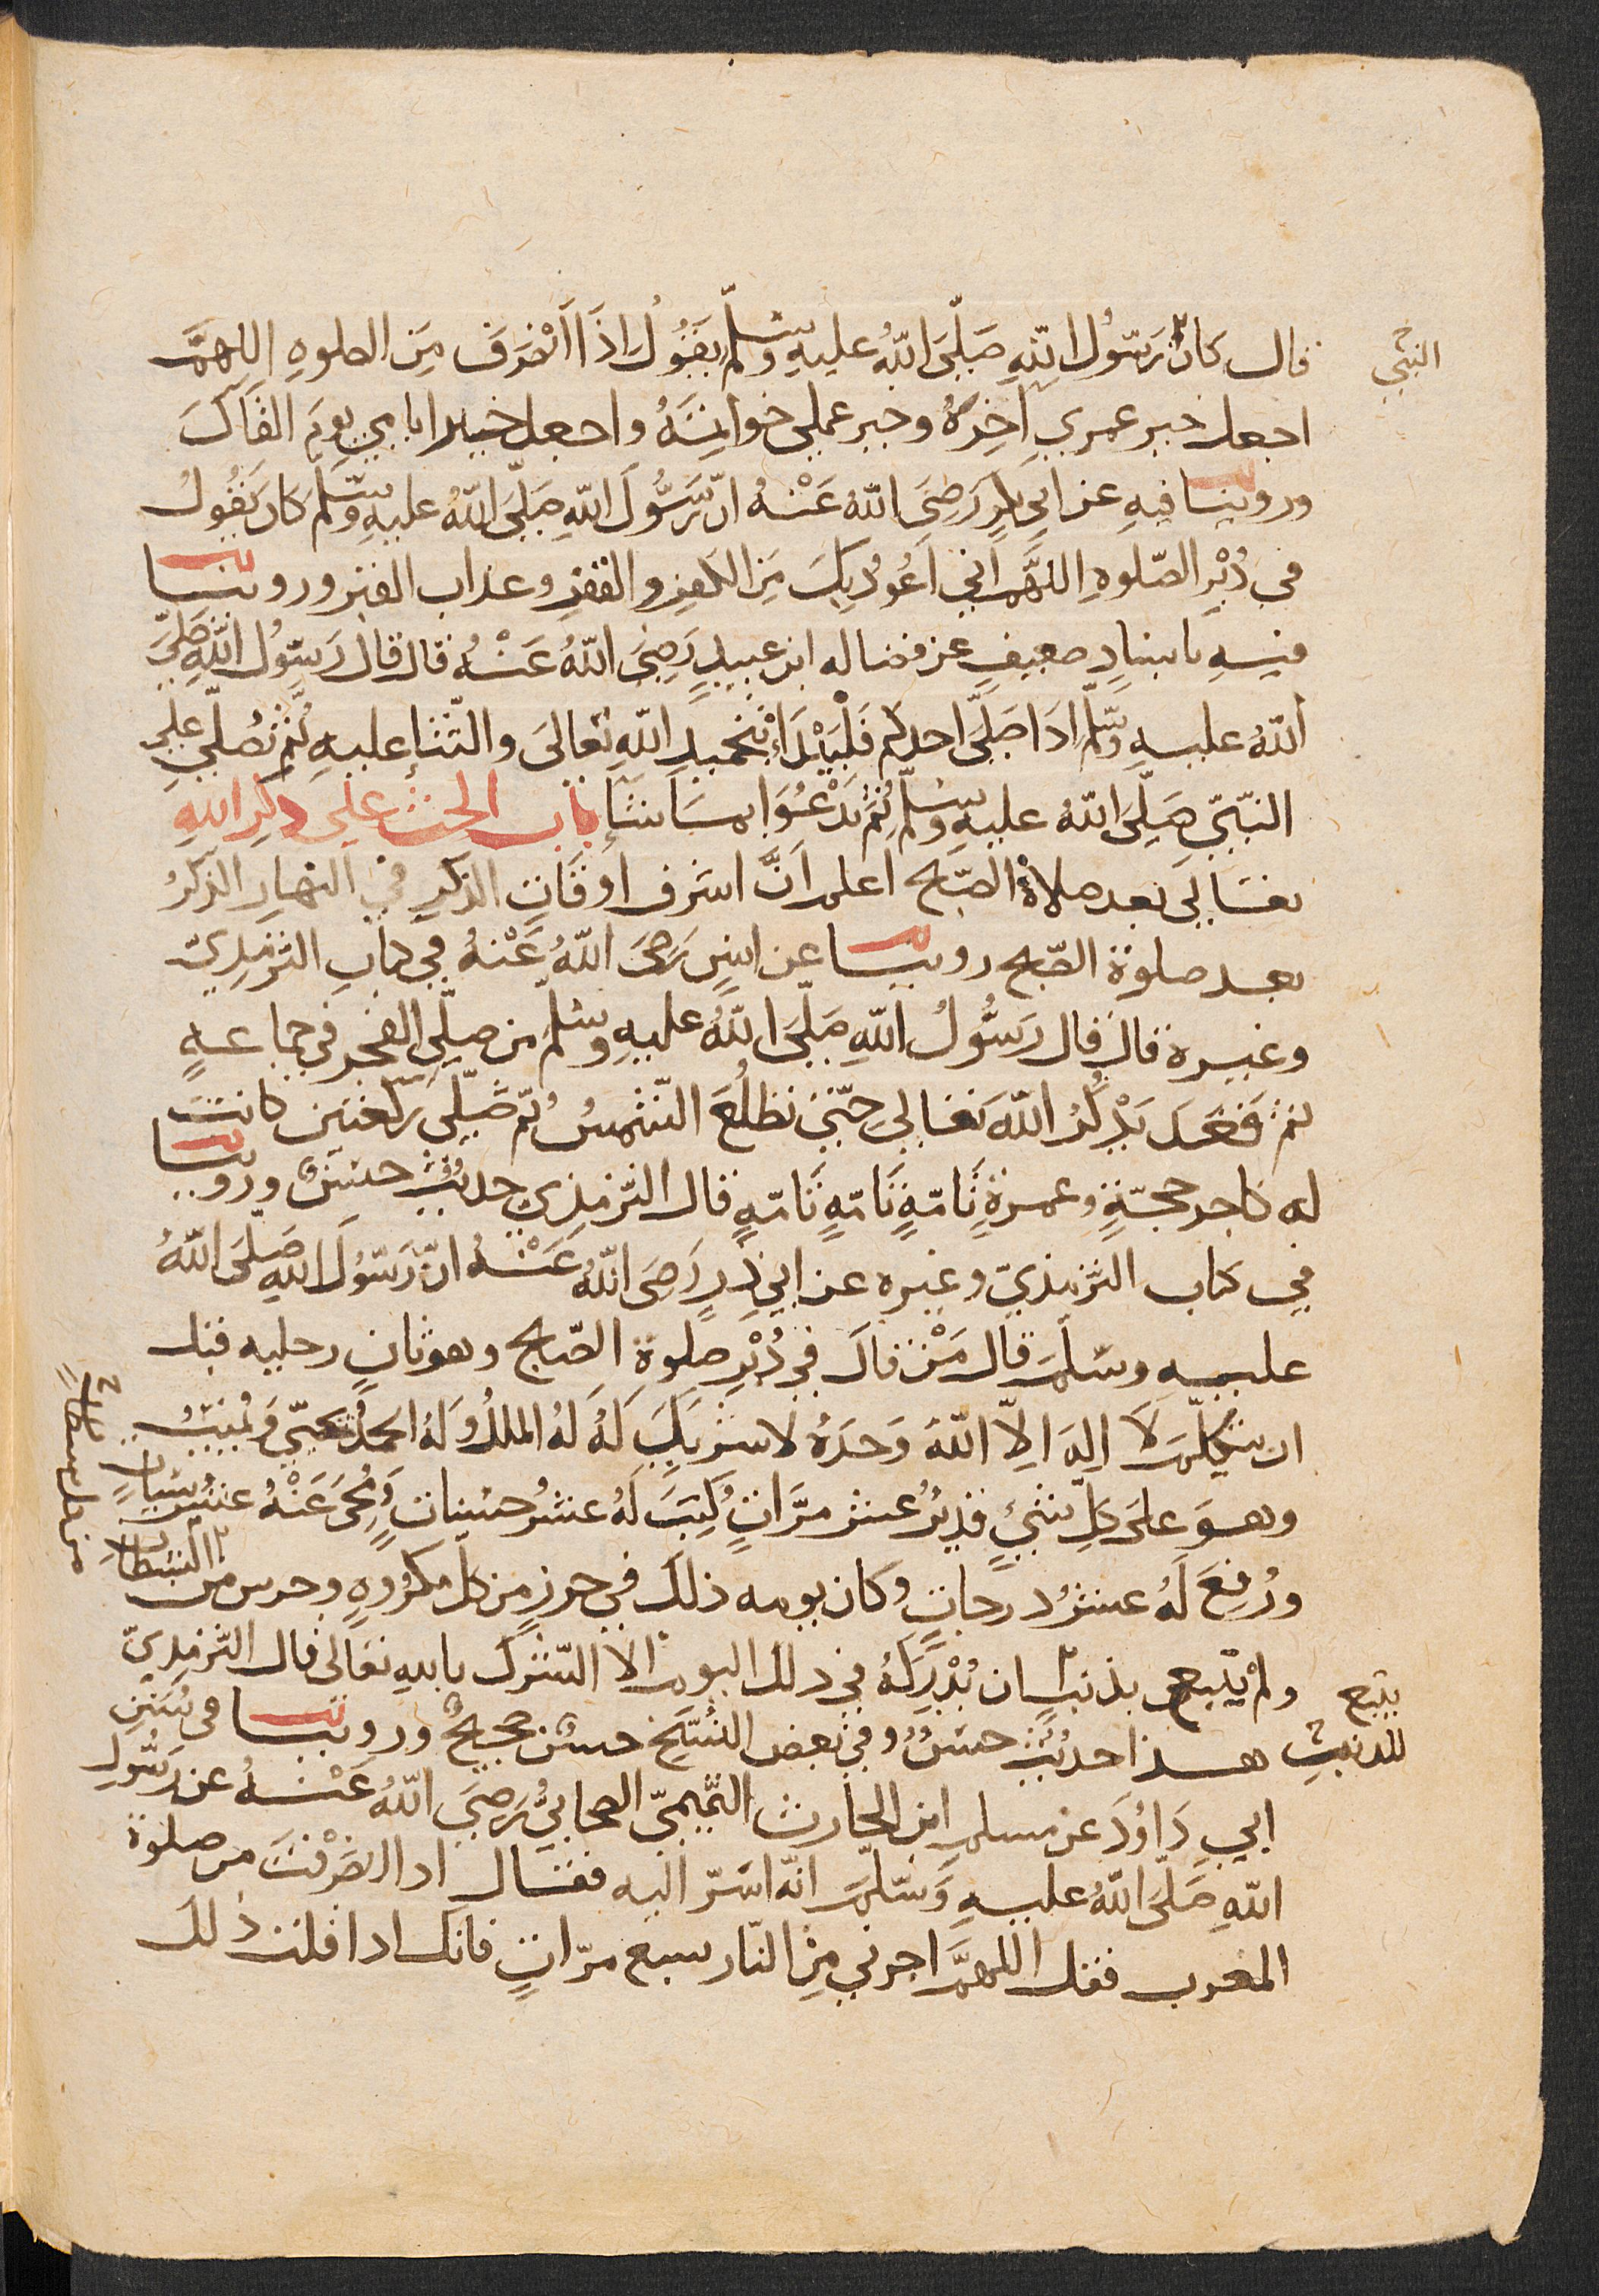 النبي
قال كان رَسُول اللهِ صَلَّى اللهُ عليهِ وسلّم يَقُولُ اِذَا اَنْصَرَفَ مِنَ الصلوهِ اللهمَّ
اجعل خير عمري آخِرَهُ وخير عملي خواتِمَهُ واجعل خير ايامي يوم القاك
وروينا فيهِ عن ابي بكر رَضِيَ اللهُ عَنْهُ انّ رَسُولَ اللهِ صَلَّى اللهُ عليهِ وَسَلّم كَان يَقُولُ
في دُبْرِ الصّلوهِ اللهُمَّ اني اَعُوذُ بِكَ مِن الكفرِ والفقرِ وعذاب القبر وروينا
فيهِ باسنادٍ ضعيفٍ عن فضاله ابن عبيدٍ رَضِيَ اللهُ عَنْهُ قال قال رَسُول اللهِ صَلّى
اللهُ عليهِ وسلّم اِذَا صَلَّى احدكم فَلْيَبْدَأْ بتحميدِ اللهِ تَعالَى والثّناءِ عليهِ ثُمّ يُصَلّي على
النّبيّ صَلَّى اللهُ عليهِ وسلّم ثُمّ يَدْعُوا بمَا شَاءَ باب الحث على ذكرِ اللهِ
تعَالَى بعد صلاة الصّبح اعلم اَنَّ اشرف اوقَاتِ الذكرِ في النهارِ الذكرُ
بعد صلوة الصّبح روينا عن انسٍ رَضيَ اللهُ عَنْهُ في كتابِ الترمذِيّ
وغيره قال قال رَسُولُ اللهِ صَلَّى اللهُ عليهِ وسلّم من صلّى الفجر في جماعةٍ
ثم قَعَدَ يَذْكُرُ اللهَ تَعَالي حَتّى تطلُعَ الشّمسُ ثمّ صَلّى ركعتين كانت
له كاجر حجّةٍ وعمرةٍ تَامّةٍ تَامّةٍ تَامّةٍ قال التّرمذي حديث حسن وروينا
في كتاب الترمذيّ وغيره عن ابي ذرٍ رَضِيَ اللهُ عَنْهُ انّ رَسُولَ اللهِ صَلى اللهُ
عليهِ وسَلّم قال مَنْ قالَ في دُبْرِ صلوة الصّبح وهو ثانٍ رجليه قبل
ان يتكلّم لَا اِلَهَ اِلاّ اللهُ وَحدَهُ لا شريكَ لَهُ لَهُ الملكُ وَلَهُ الحمدُ يُحْيي ويُميتُ
وهوَ علَى كلِّ شيءٍ قديرٌ عشر مرَّاتٍ كُتِبَ لَهُ عشرُ حسناتٍ وَمُحِيَ عَنْهُ عشر سيّئاتٍ
ورُفِعَ لَهُ عشرُ درجاتٍ وكان يومه ذلك في حرزٍ من كلّ مكروهٍ وحرس من الشيطان
يتبع
ولم يتبع بذنبٍ ان يُدْرِكَهُ في ذلك اليوم الا الشّرك باللهِ تعَالى قال الترمذيّ
للذنب
هذا حديثٌ حسنٌ وفي بعض النُّسَخ حسن صحيح وروينا في سُنَنِ
ابي دَاوُدَ عن مسلم ابن الحارث التّميميّ الصحابيّ رَضِيَ اللهُ عَنْهُ عن رَسُولِ
اللهِ صَلَّى اللهُ عليهِ وَسَلّم انّه اسَرّ اليه فقال اذا انصَرَفْتَ من صلوة
المغرب فقل اللهمَّ اجرني مِن النّار سبع مرّاتٍ فانك اذا قلت ذلك